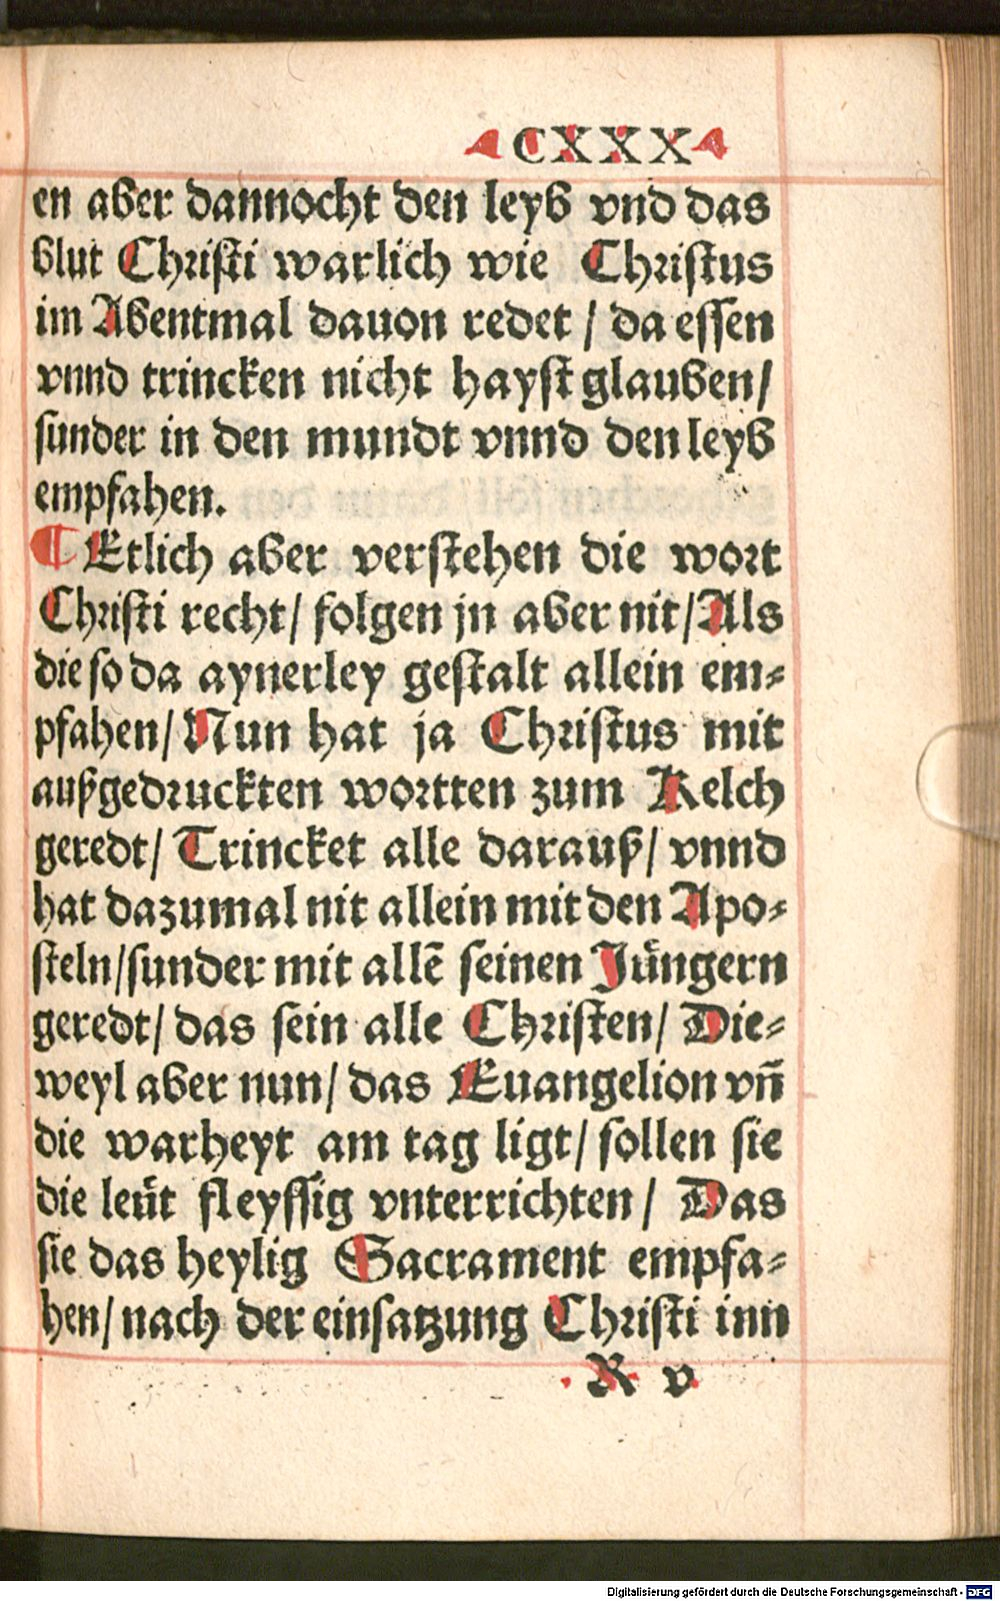 CXXX
en aber dannocht den leyb vnd das
blut Christi warlich wie Christus
im Abentmal dauon redet / da essen
vnnd trincken nicht hayst glauben/
sunder in den mundt vnnd den leyb
empfahen.
¶ Etlich aber verstehen die wort
Christi recht/ folgen jn aber nit/ Als
die so da aynerley gestalt allein em⸗
pfahen/ Nun hat ja Christus mit
außgedruckten wortten zum Kelch
geredt/ Trincket alle darauß/ vnnd
hat dazumal nit allein mit den Apo⸗
steln/ sunder mit allē seinen Jüngern
geredt/ das sein alle Christen/ Die⸗
weyl aber nun/ das Euangelion vñ
die warheyt am tag ligt/ sollen sie
die leüt fleyssig vnterrichten/ Das
sie das heylig Sacrament empfa⸗
hen/ nach der einsatzung Christi inn
R v
Digitalisierung gefördert durch die Deutsche Forschungsgemeinschaft - DFG